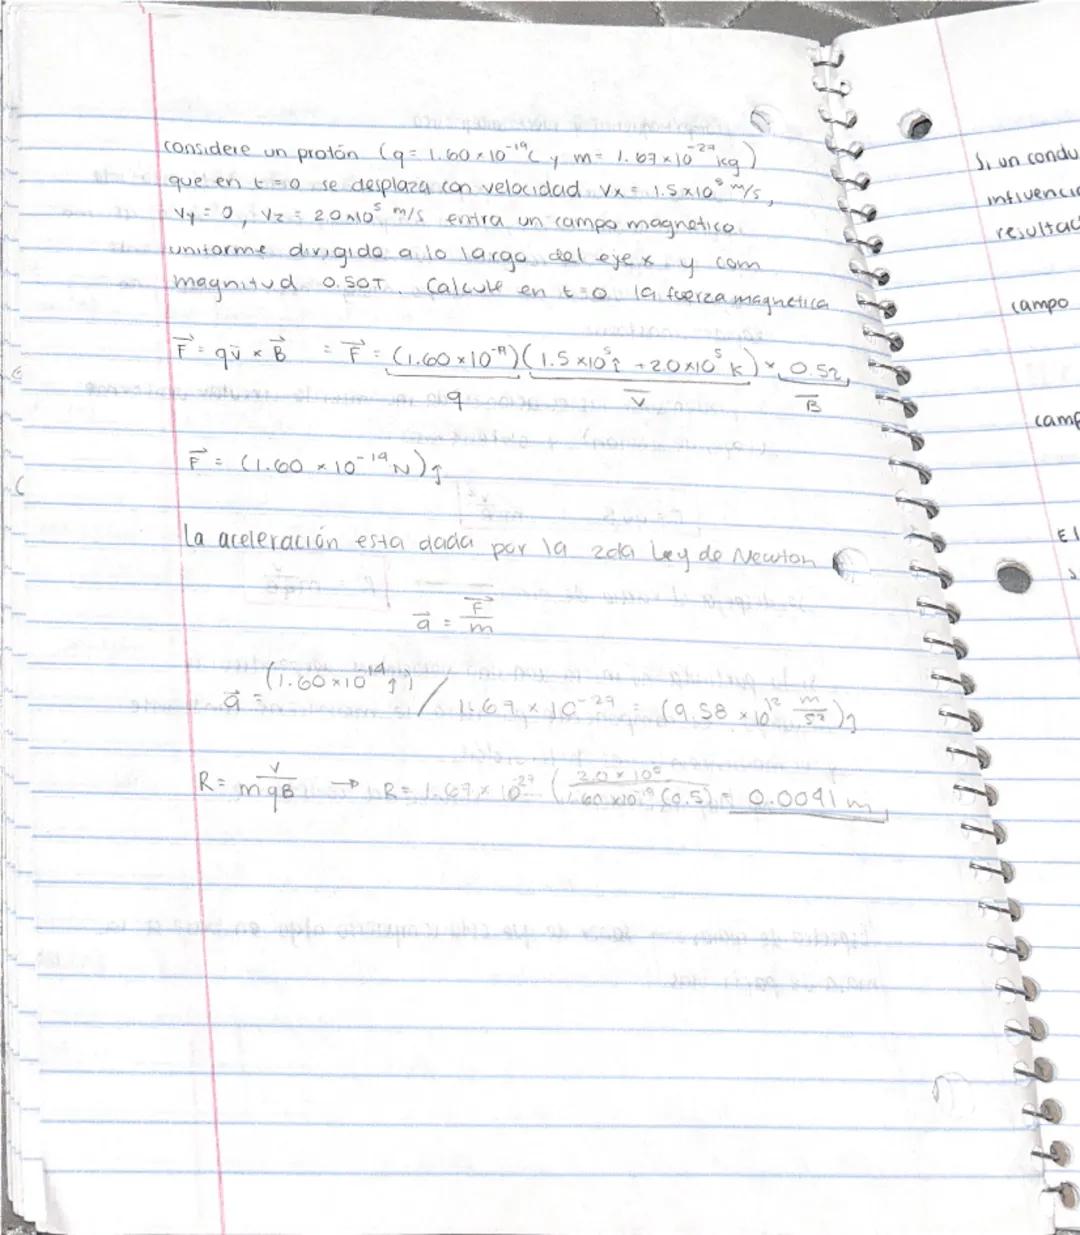 considere un protón (q = 1.60×10^-19 C y m = 1.67×10^-27 kg)
que en t=0 se desplaza con velocidad Vx = 1.5×10^5 m/s,
Vy = 0, Vz = 2.0×10^5 m/s entra un campo magnetico
uniforme dirigido a lo largo del eje x y com
magnitud 0.50T. Calcule en t=0 la fuerza magnetica
F = qv × B = F = (1.60×10^-19)(1.5×10^5 î + 2.0×10^5 k) × 0.52
q V B
F = (1.60 × 10^-14 N)ĵ
La aceleración esta dada por la 2da Ley de Newton
a = F/m
a = (1.60×10^-14 ĵ) / 1.67 × 10^-27 = (9.58 × 10^12 m/s²)ĵ
R = m v/qB → R = 1.67 × 10^-27 (2.0×10^5 / 1.60×10^-19 (0.5)) = 0.0041 m
Si un condu
influencia
resultad
campo
camp
El